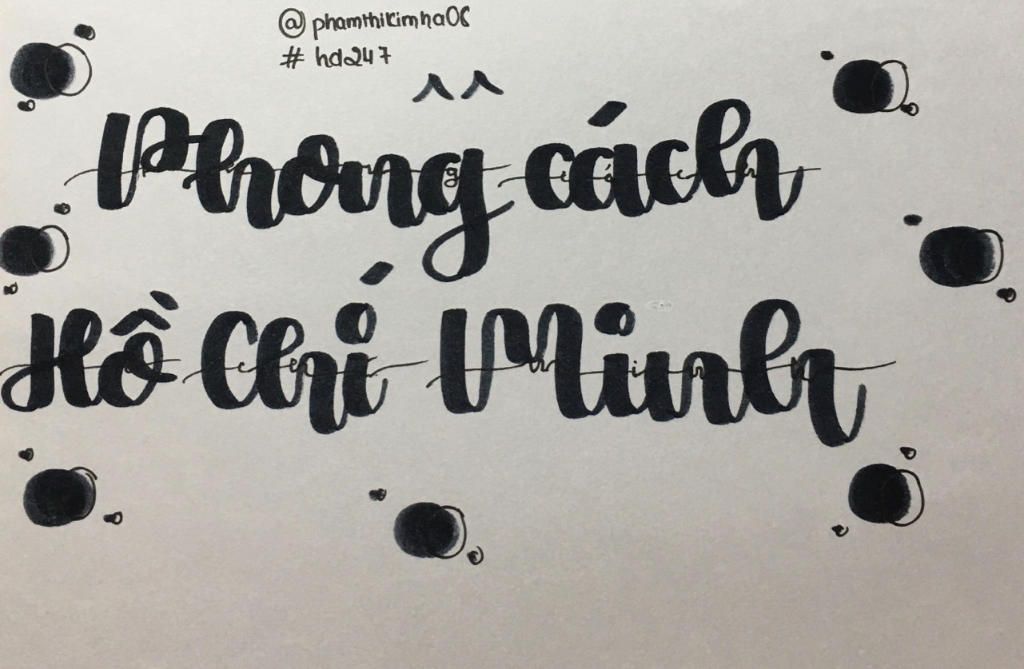 @phamthikimha06
# hd247
^^
Phong cách
Hồ Chí Minh